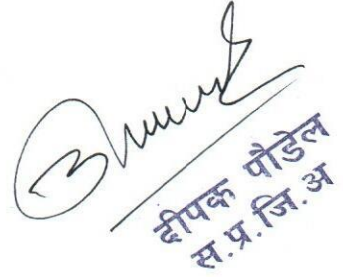 दीपक पौडेल
स.प्र.जि.अ